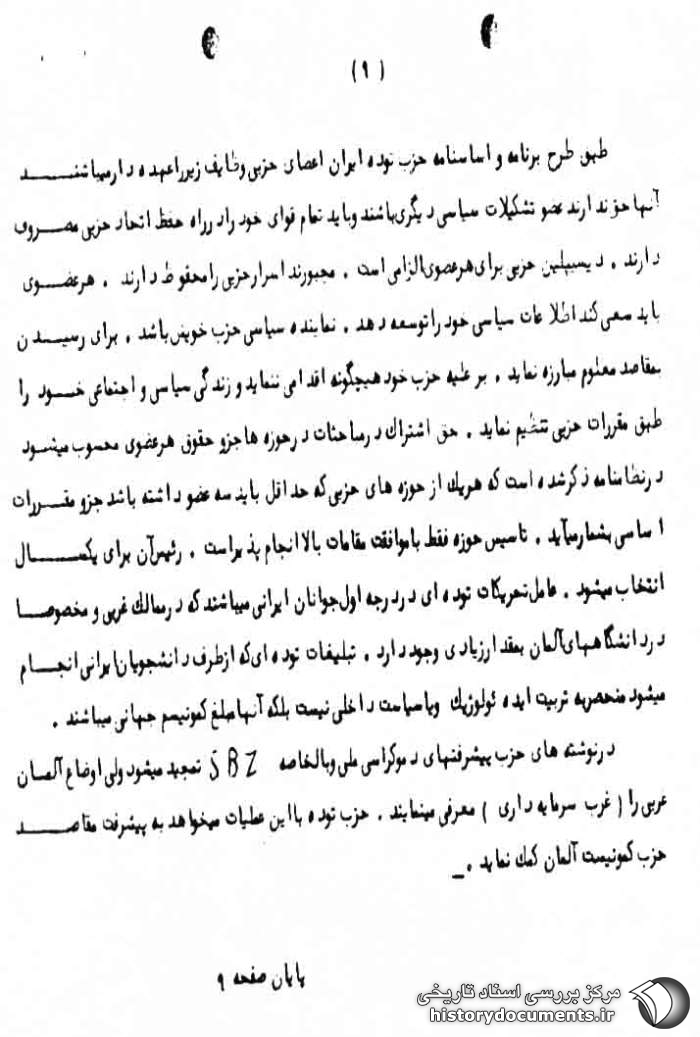 (۹)
طبق طرح برنامه و اساسنامه حزب توده ایران اعضای حزبی وظایف زیر را عهده دار میباشنـــــد
آنها حق ندارند عضو تشکیلات سیاسی دیگری باشند و باید تمام قوای خود را در راه حفظ اتحاد حزبی مصـــروف
دارند . دیسیپلین حزبی برای هر عضوی الزامی است . مجبورند اسرار حزبی را محفوظ دارند . هر عضـــوی
باید سعی کند اطلاعات سیاسی خود را توسعه دهد . نماینده سیاسی حزب خویش باشد . برای رسیـــدن
بمقاصد معلوم مبارزه نماید . بر علیه حزب خود هیچگونه اقدامی ننماید و زندگی سیاسی و اجتماعی خـــود را
طبق مقررات حزبی تنظیم نماید . حق اشتراک در مباحثات در حوزه ها جزو حقوق هر عضوی محسوب میشـود
در نظامنامه ذکر شده است که هریک از حوزه های حزبی که حداقل باید سه عضو داشته باشد جزو مقـــررات
اساسی بشمار میآید . تاسیس حوزه فقط با موافقت مقامات بالا انجام پذیر است . رئیس آن برای یکـــسال
انتخاب میشود . عامل تحریکات توده ای در درجه اول جوانان ایرانی میباشند که در ممالک غربی و مخصوصـــا
در دانشگاههای آلمان بمقدار زیادی وجود دارد . تبلیغات توده ای که از طرف دانشجویان ایرانی انجـــام
میشود منحصر به تربیت ایده ئولوژیک و یا سیاست داخلی نیست بلکه آنها مبلغ کمونیسم جهانی میباشند .
در نوشته های حزب پیشرفتهای دموکراسی ملی و بالخاصه SBZ تمجید میشود ولی اوضاع آلمـــان
غربی را ( غرب سرمایه داری ) معرفی مینمایند . حزب توده با این عملیات میخواهد به پیشرفت مقاصـــد
حزب کمونیست آلمان کمک نماید . ــ
پایان صفحه ۹
مرکز بررسی اسناد تاریخی
historydocuments.ir